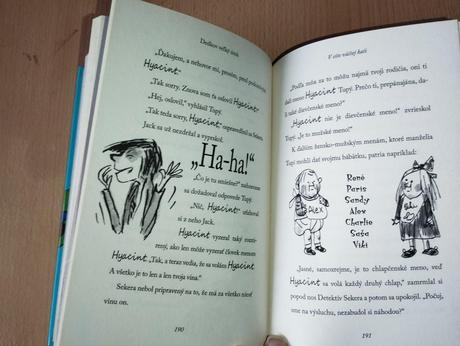 Dedkov veľký útek
„Ďakujem, a nehovor mi, prosím, pred podozrivým
Hyacint.“
„Tak sorry. Znova som ťa oslovil Hyacint.“
„Hej, oslovil,“ vyhlásil Tupý.
„Tak teda sorry, Hyacint,“ neprezradil sa Sekera.
Jack sa už nezdržal a vyprskol.
„Ha-ha!“
„Čo je tu smiešne?“
dožadoval odpovede Tupý.
„Nič, Hyacint,“
z neho Jack.
Hyacint vyzeral taký
zerane, ako len môže vyzerať človek menom
Hyacint. „Tak, a teraz vedia, že sa volám Hyacint.
A všetko je to len a len tvoja vina.“
Sekera nebol pripravený na to, že má za všetko niesť
vinu on.
190
V ešte väčšej kaši
„Podľa mňa za to môžu najmä tvoji rodičia, oni ti
dali meno Hyacint Tupý. Preto ti, prepánajána, dali
také dievčenské meno?“
„Hyacint nie je dievčenské meno!“ zvrieskol
Tupý. „Je to mužské meno!“
K ďalším žensko-mužským menám, ktoré manželia
Tupí mohli dať svojmu bábätku, patria napríklad:
René
Paris
Sandy
Alex
Charlie
Saša
Viki
ALEX
„Jasné, samozrejme, je to chlapčenské meno, veď
Hyacint sa volá každý druhý chlap,“ zamrmlal si
popod nos Detektív Sekera a potom sa upokojil. „Počuj,
sme na výsluchu, nezabudol si náhodou?“
191